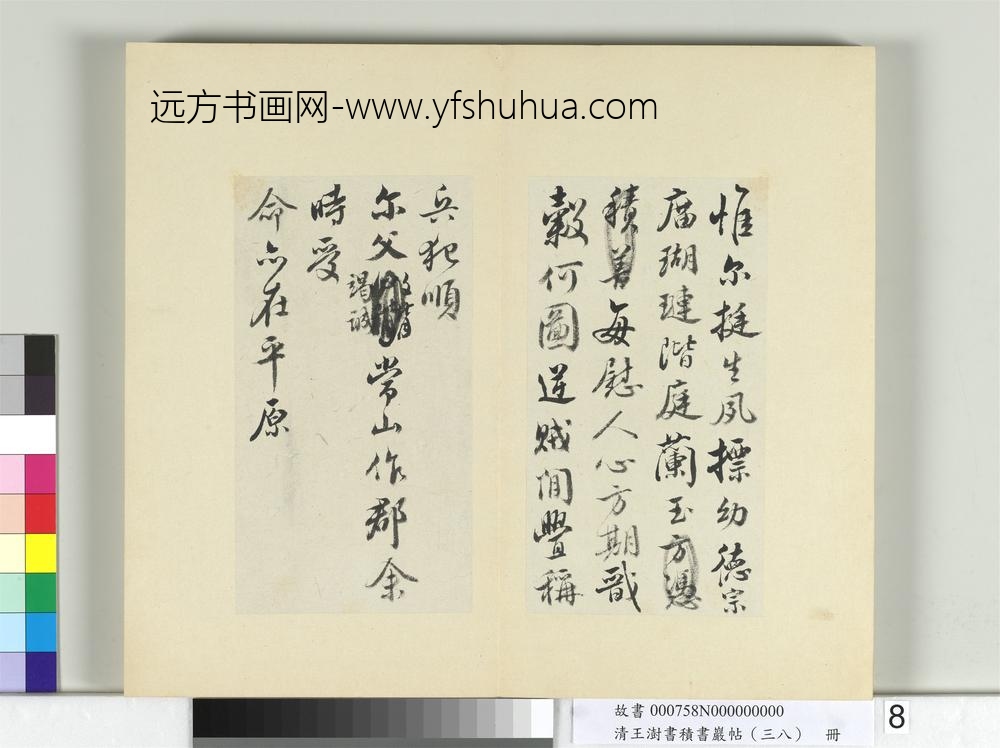 远方书画网-www.yfshuhua.com
惟尔挺生夙標幼德宗
庿瑚璉階庭蘭玉方憑
積善每慰人心方期戩
穀何圖逆賊間舋稱
兵犯順
尔父竭誠常山作郡余
時受
命亦在平原
故書 000758N000000000
清王澍書積書巖帖（三八） 冊
8